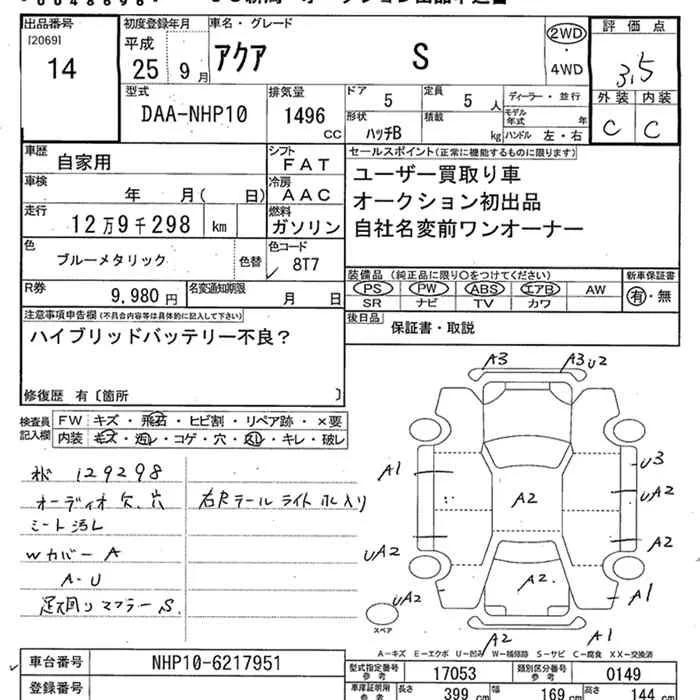 出品番号
[2069]
14
初度登録年月
平成
25 9 月
車名・グレード
アクア S
2WD
・
4WD
評価点
3.5
外装 内装
C C
型式
DAA-NHP10
排気量
1496
CC
ドア
5
定員
5 人
ディーラー・並行
形状
ハッチB
積載
kg
モデル年式 年
ハンドル 左・右
車歴
自家用
シフト
FAT
車検
年 月( 日)
冷房
AAC
走行
12万9千298 km
燃料
ガソリン
色
ブルーメタリック
色替
色コード
8T7
R券
9,980 円
名変通知期限
月 日
セールスポイント(正常に機能するものに限ります)
ユーザー買取り車
オークション初出品
自社名変前ワンオーナー
装備品 (純正品に限り○をつけてください)
新車保証書
PS PW ABS エアB AW
SR ナビ TV カワ
有・無
後日品
保証書・取説
注意事項申告欄(不具合内容等は具体的に記入して下さい)
ハイブリッドバッテリー不良?
修復歴 有〔箇所 〕
検査員記入欄
FW キズ・飛石・ヒビ割・リペア跡・×要
内装 キズ・汚レ・コゲ・穴・スレ・キレ・破レ
129298
オーディオ欠、穴
シート汚レ
Wカバー A
A・U
足廻りマフラーS.
右Rテールライト水入り
A3
A3 U2
A1
U3
UA2
A2
A2
UA2
A2
A2
UA2
A1
A2
A1
スペア
A-キズ E-エクボ U-凹み W-補修跡 S-サビ C-腐食 XX-交換済
車台番号
NHP10-6217951
登録番号
型式指定番号
参考
17053
類別区分番号
参考
0149
車庫証明用
長さ
399 cm
幅
169 cm
高さ
144 cm